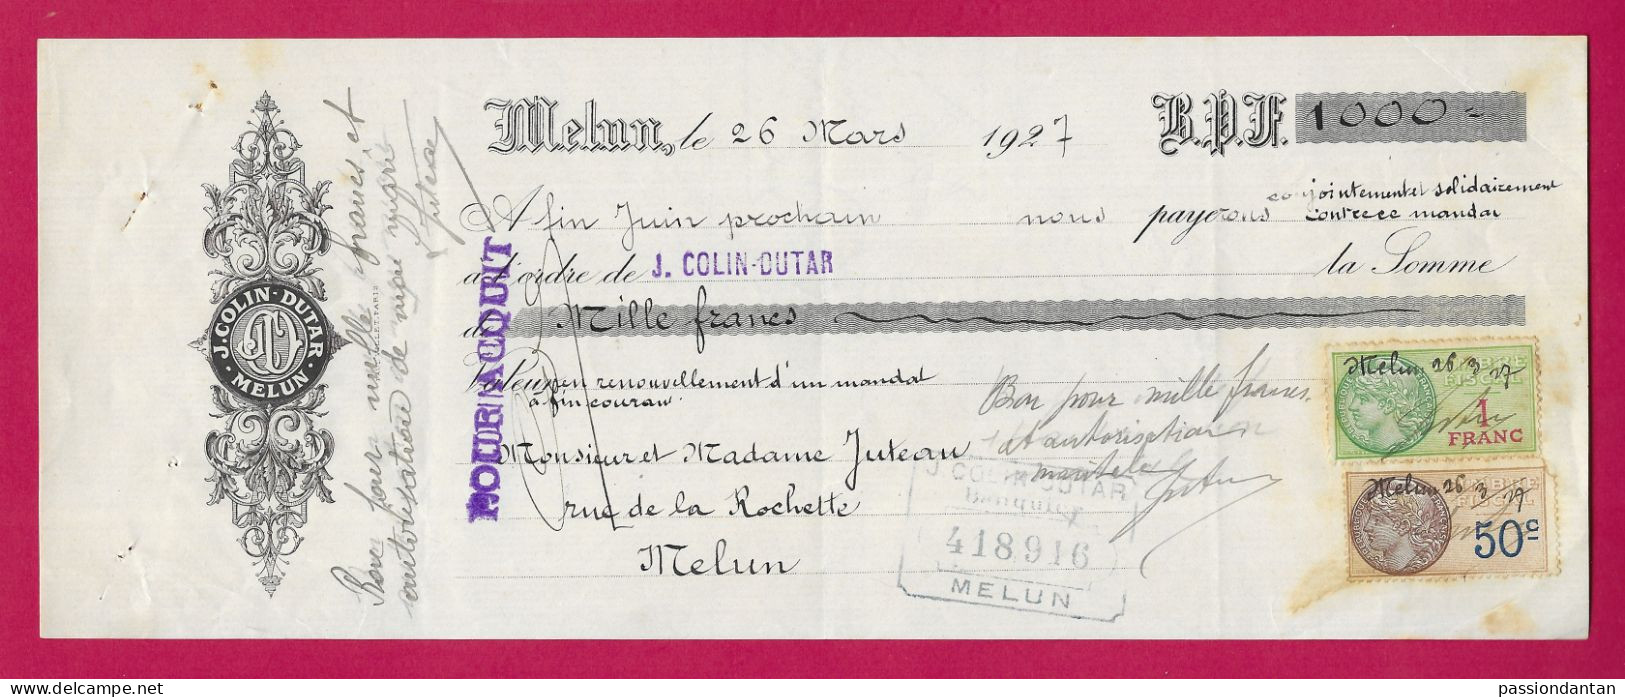 Melun, le 26 Mars 1927 B.P.F. 1000=
A fin Juin prochain nous payerons conjointement et solidairement
contre ce mandat
à l'ordre de J. COLIN-DUTAR la Somme
de Mille francs
Valeur en renouvellement d'un mandat
à fin courant
Monsieur et Madame Juteau
rue de la Rochette
Melun
POUR ACQUIT
Bon pour mille francs
et autorisation
maritale
Juteau
J. COLIN-DUTAR
Banquier
418916
MELUN
Melun 26 3 27
TIMBRE
FISCAL
1
FRANC
Melun 26 3 27
TIMBRE
FISCAL
50c
J. COLIN-DUTAR
MELUN
Bon pour mille francs et
autorisation de mon mari
Juteau
passiondantan